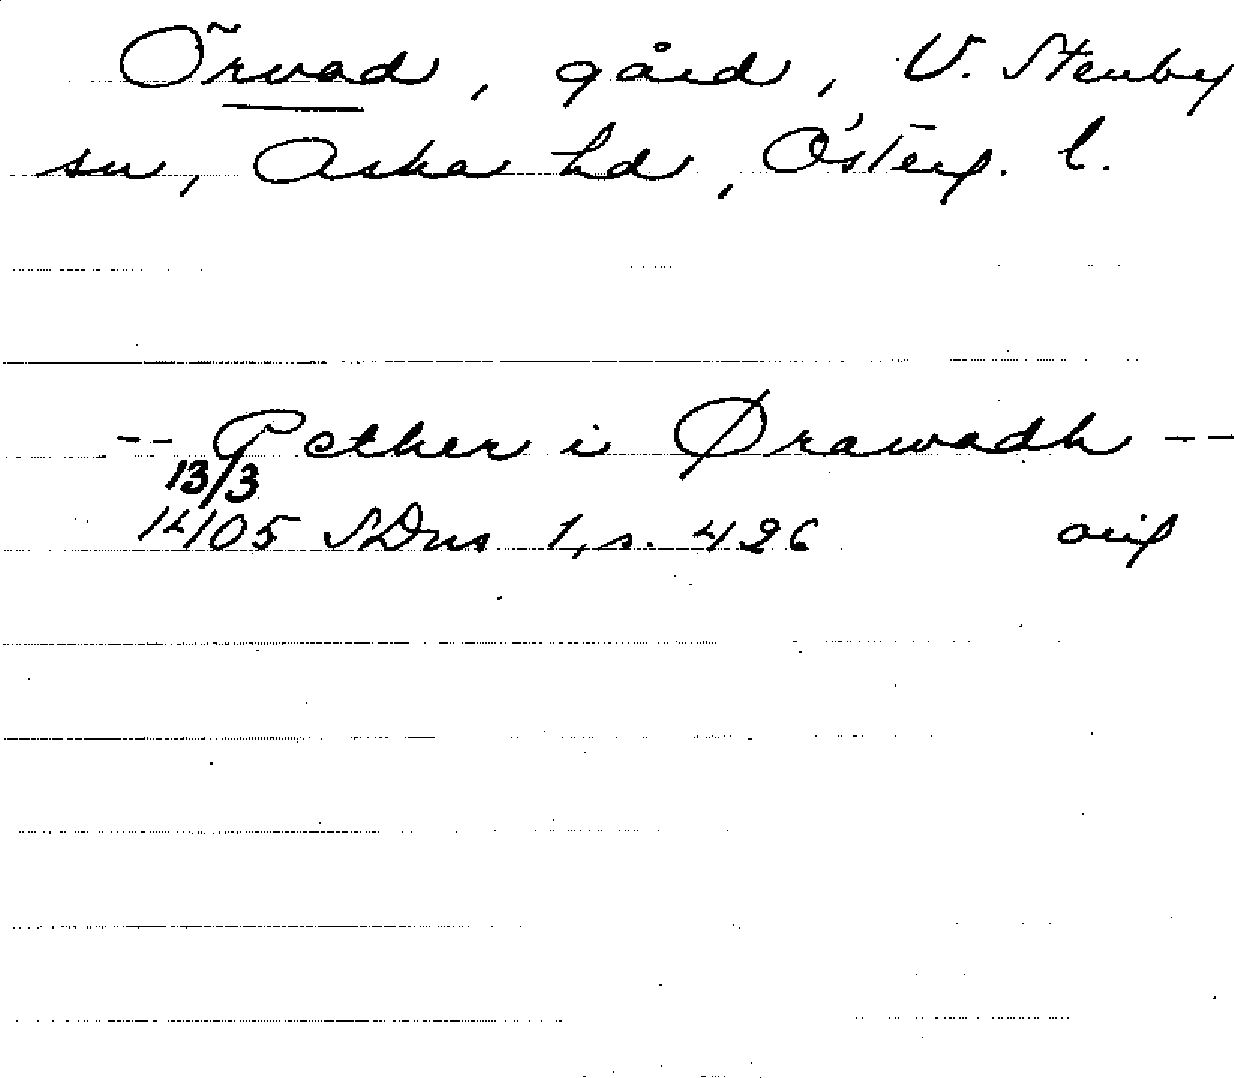 Örvad, gård, V. Stenby
sn, Aska hd, Österg. l.
-- Pether i Ørawadh --
13/3
1405 SDns 1, s. 426 orig